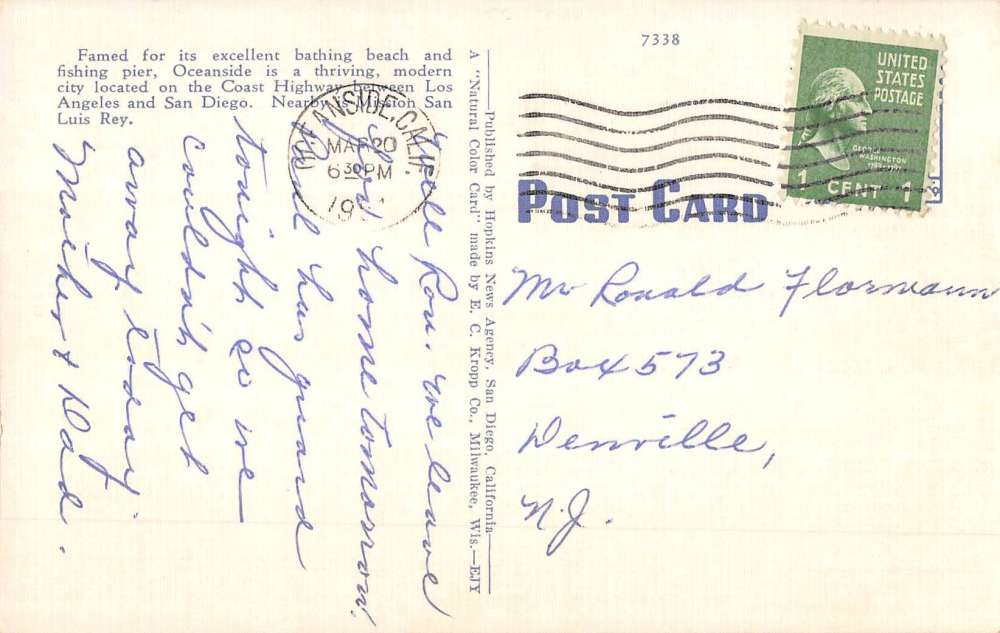 Famed for its excellent bathing beach and
fishing pier, Oceanside is a thriving, modern
city located on the Coast Highway between Los
Angeles and San Diego. Nearby is Mission San
Luis Rey.
OCEANSIDE, CALIF.
MAR 20
6 30 PM
Well Ron, we leave
for home tomorrow.
has guard
tonight so we
couldn't get
away today.
Mother & Dad.
Published by Hopkins News Agency, San Diego, California
A "Natural Color Card" made by E. C. Kropp Co., Milwaukee, Wis.—EJY
7338
UNITED
STATES
POSTAGE
GEORGE
WASHINGTON
1 CENT 1
POST CARD
Mr Ronald Flormann
Box 573
Denville,
N.J.